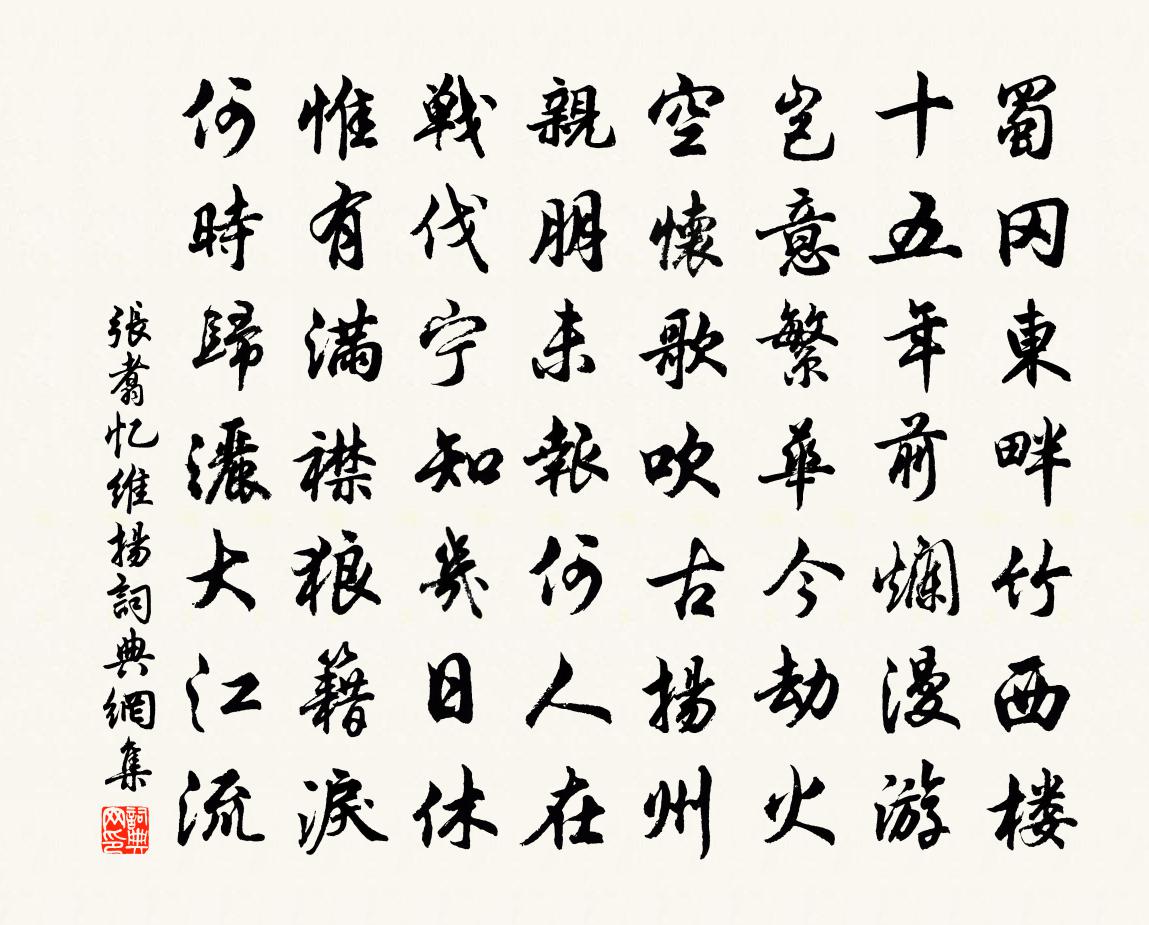 蜀冈東畔竹西楼
十五年前爛漫游
岂意繁華今劫火
空懷歌吹古揚州
親朋未報何人在
戦伐宁知幾日休
惟有满襟狼籍淚
何時歸灑大江流
張翥忆維揚詞典網集
詞典网印